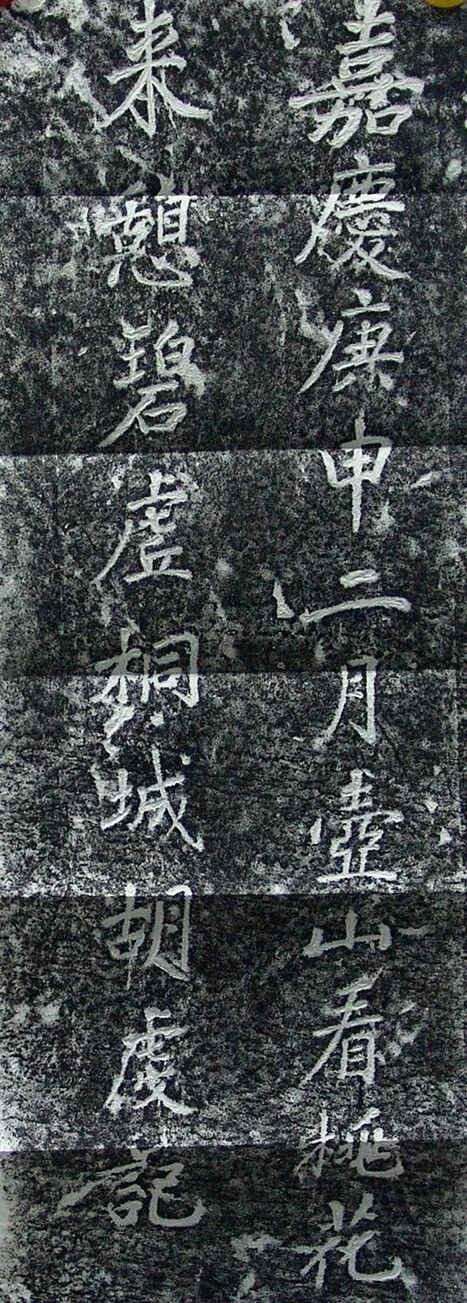 嘉慶庚申二月壺山看桃花
来憩碧虚桐城胡虔記